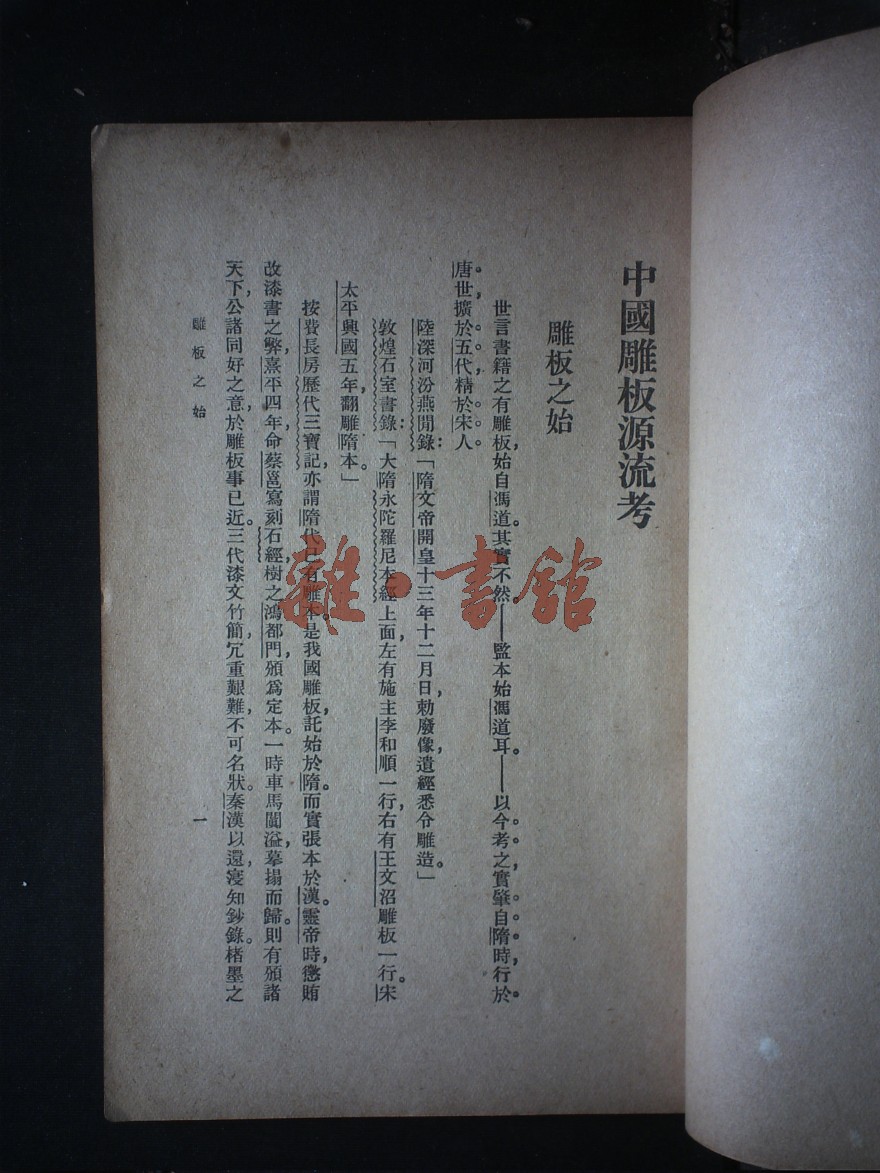 中國雕板源流考
雕板之始
世言書籍之有雕板，始自馮道。其實不然——監本始馮道耳。——以今考之，實肇自隋時，行於
唐世，擴於五代，精於宋人。
陸深河汾燕閒錄：「隋文帝開皇十三年十二月日，勅廢像遺經，悉令雕造。」
敦煌石室書錄：「大隋永陀羅尼本經上面左有施主李和順一行，右有王文沼雕板一行。宋
太平興國五年，翻雕隋本。」
按費長房歷代三寶記，亦謂隋代已有雕本。是我國雕板，託始於隋。而實張本於漢。靈帝時，懲賄
改漆書之弊，熹平四年，命蔡邕寫刻石經，樹之鴻都門，頒爲定本。一時車馬闐溢，摹搨而歸。則有頒諸
天下，公諸同好之意，於雕板事已近。三代漆文竹簡，冗重艱難，不可名狀。秦漢以還，寖知鈔錄。楮墨之
雕板之始
一
雜·書館